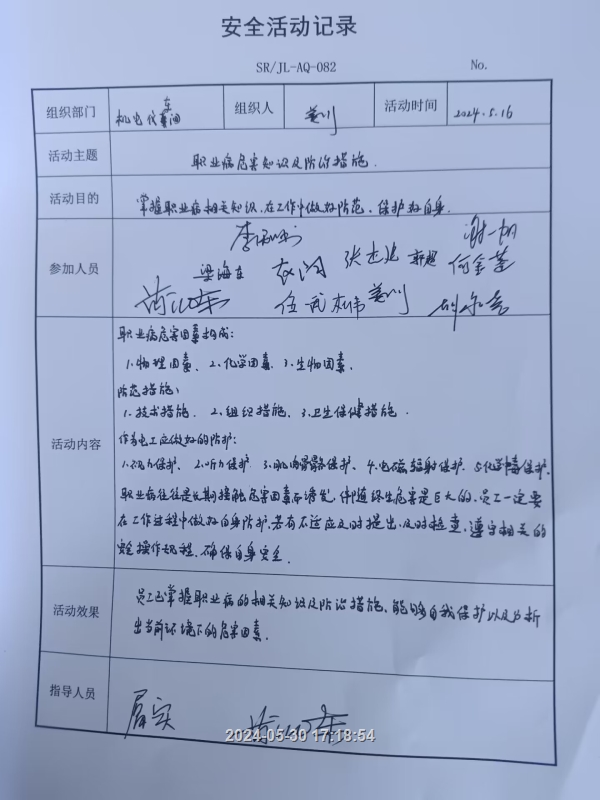 安全活动记录
SR/JL-AQ-082 No.
组织部门 机电仪 组织人 活动时间 2024.5.16
活动主题 职业病危害知识及防治措施.
活动目的 掌握职业病相关知识、在工作中做好防范、保护好自身.
参加人员
梁海 张 何金
任武
活动内容
职业病危害因素构成:
1.物理因素、2.化学因素、3.生物因素.
防范措施:
1.技术措施. 2.组织措施、3.卫生保健措施.
作为电工应做好的防护:
1.视力保护、2.听力保护、3.肌肉骨骼保护、4.电磁辐射保护、5.化学中毒保护.
职业病往往是长期接触危害因素而诱发,伴随终生危害是巨大的、员工一定要
在工作过程中做好自身防护.若有不适应及时提出、及时检查、遵守相关的
安全操作规程.确保自身安全.
活动效果
员工已掌握职业病的相关知识及防治措施、能够自我保护以及分析
出当前环境下的危害因素.
指导人员
2024-05-30 17:18:54